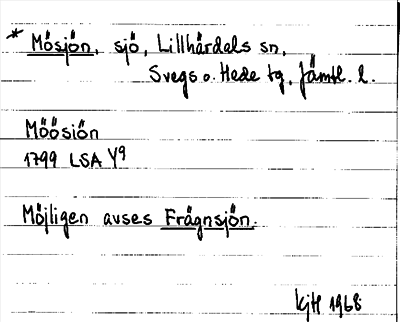 * Mösjön, sjö, Lillhärdals sn,
Svegs o. Hede tg, Jämtl. l.
Möösiön
1799 LSA Y9
Möjligen avses Frägnsjön.
KjH 1968